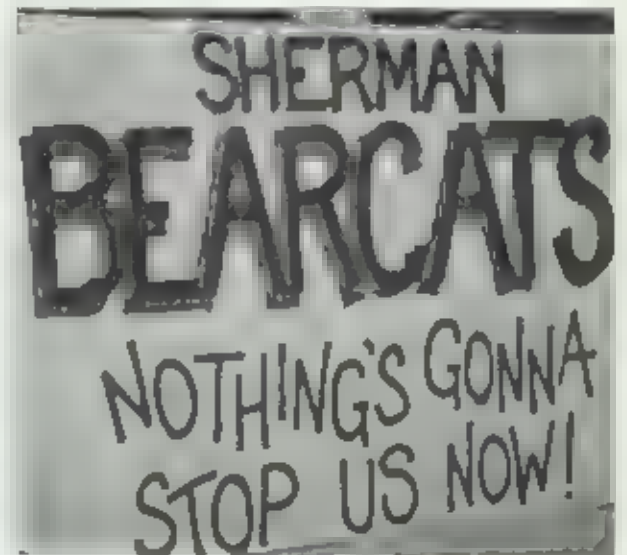 SHERMAN
BEARCATS
NOTHING'S GONNA
STOP US NOW!